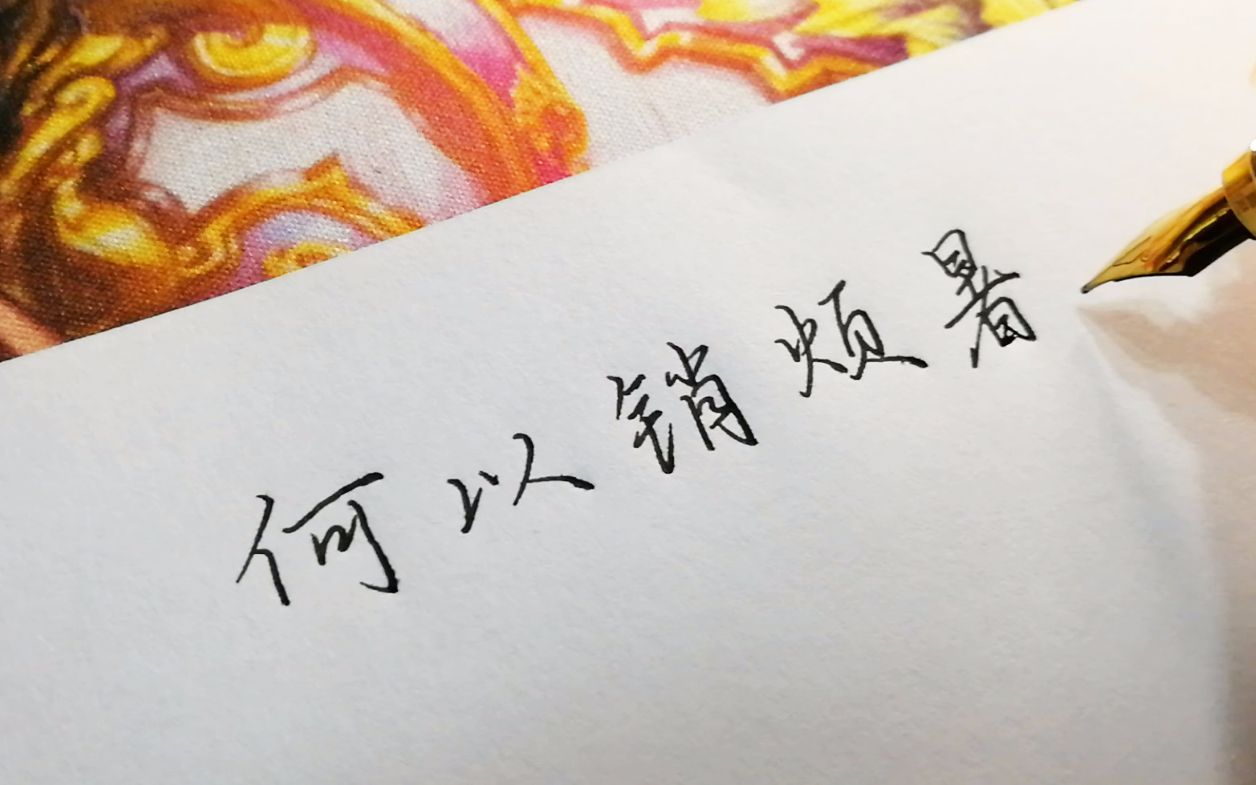 何以销烦暑